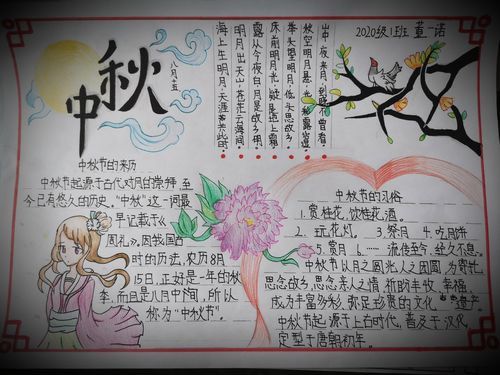 中秋
八月十五
2020级1班 董一诺
山中夜来月，到晓不曾看。
秋空明月悬，光彩露沾湿。
举头望明月，低头思故乡。
床前明月光，疑是地上霜。
露从今夜白，月是故乡明。
明月出天山，苍茫云海间。
海上生明月，天涯共此时。
中秋节的来历
中秋节起源于古代对月的崇拜，至
今已有悠久的历史。"中秋"这一词最
早记载于《
周礼》。因我国
时的历法，农历8月
15日，正好是一年的秋
季，而且是八月中间，所以
称为"中秋节"。
中秋节的习俗
1.赏桂花，饮桂花酒。
2.玩花灯。 3.祭月 4.吃月饼
5.赏月 …… 流传至今，经久不息。
中秋节以月之圆兆人之团圆，为寄托
思念故乡，思念亲人之情，祈盼丰收、幸福，
成为丰富多彩、弥足珍贵的文化遗产。
中秋节起源于上古时代，普及于汉代，
定型于唐朝初年。